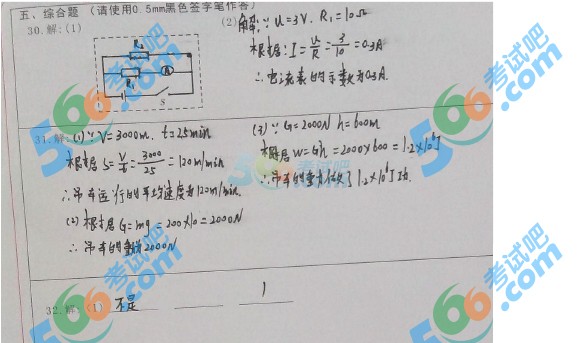 五、综合题 (请使用0.5mm黑色签字笔作答)
30.解:(1)
R₂
R₁
A
S
(2) 解:∵U=3V. R₁=10Ω
根据:I=U/R=3/10=0.3A
∴电流表的示数为0.3A.
31.解:(1)∵V=3000m. t=25min
根据S=V/t=3000/25=120m/min
∴吊车运行的平均速度为120m/min.
(2)根据G=mg=200×10=2000N
∴吊车的重为2000N
(3)∵G=2000N h=600m
根据W=Gh=2000×600=1.2×10⁶J
∴吊车的重力做了1.2×10⁶J功.
32.解:(1) 不是 1
566考试吧
566考试吧
566考试吧
566考试吧